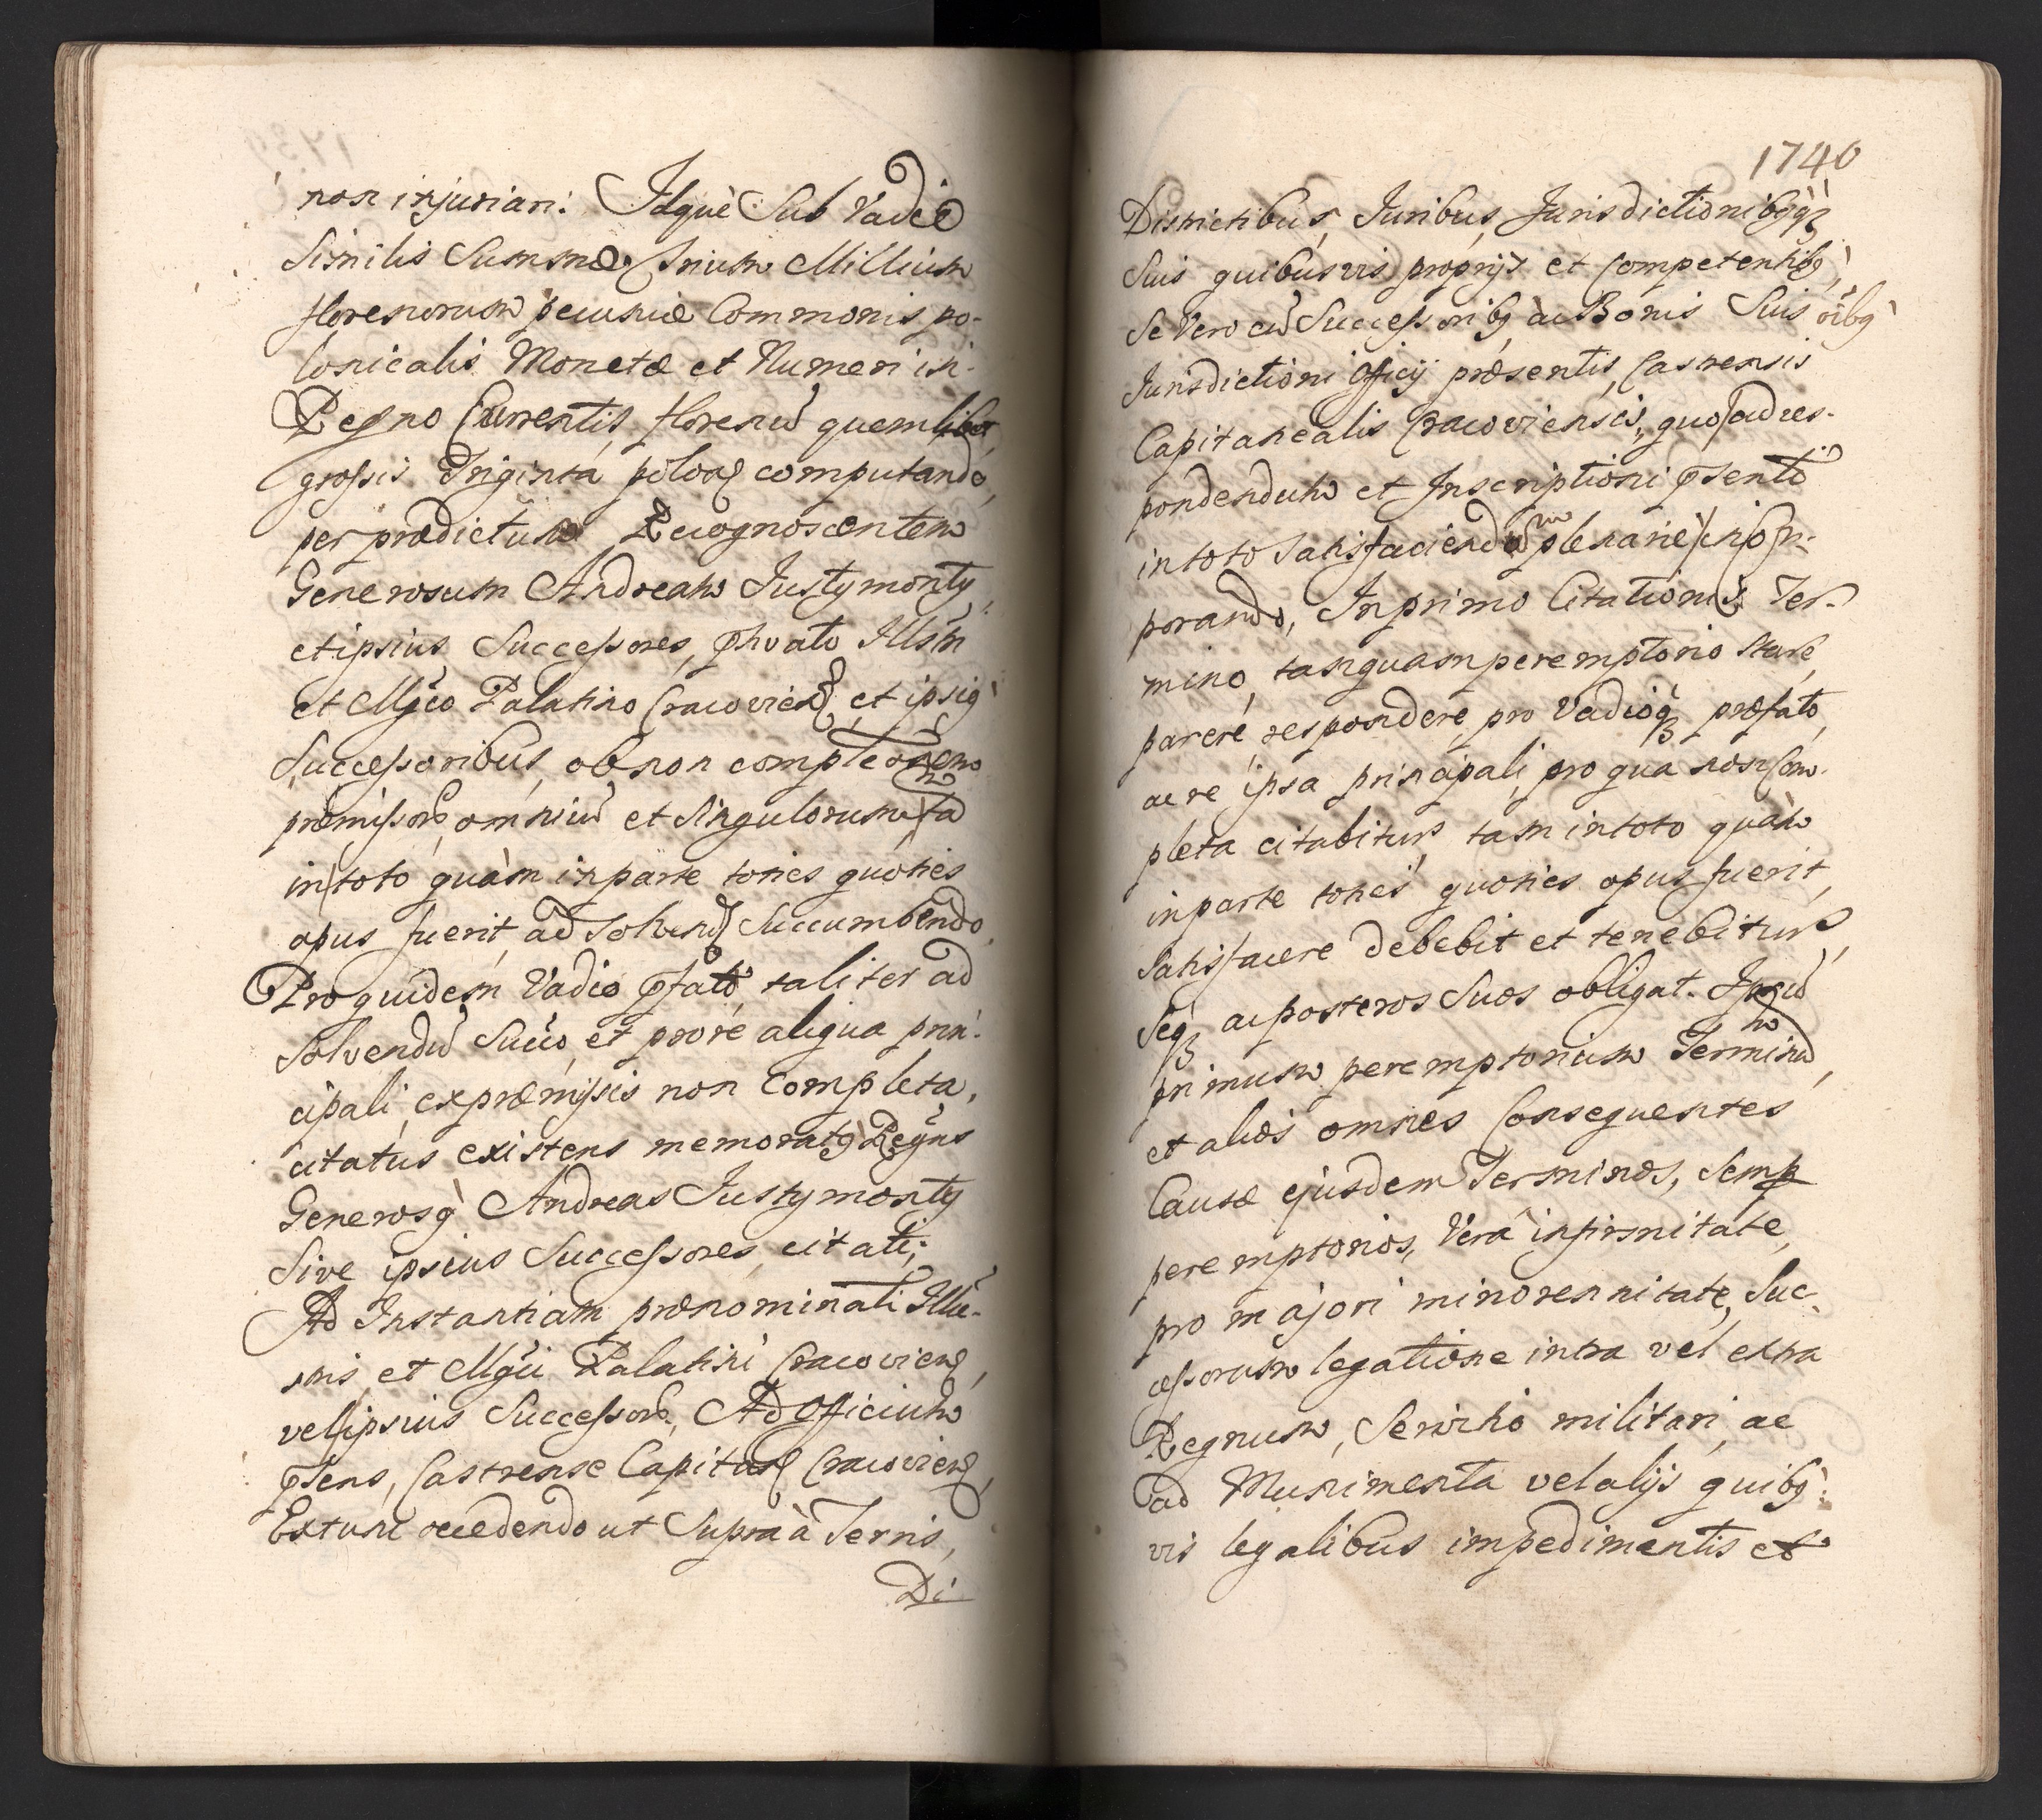 non injuriari: Idque Sub Vadio
Similis Summæ Trium Millium
florenorum pecuniæ Commonis po-
lonicalis Monetæ et Numeri in
Regno Currentis, florenu quemlibet
grossis Triginta polon computando,
per prædictum Recognoscentem
Generosum Andream Justymonty,
et ipsius Successores, phvato Illsm
et Mgco Palatino Cracovien, et ipsig
Successoribus, ob non completionem
præmissor omniu et Singulorum ta
in toto quàm in parte toties quoties
opus fuerit, ad Solvend Succumbendo,
Pro quidem Vadio pfato taliter ad
Solvendu Sucto, et pro re aliqua prin-
cipali, ex præmissis non completa,
citatus existens memoratg Regns
Generosg Andreas Justymonty
Sive ipsius Successores, citati;
Ad Instantiam prænominati Illu-
mis et Mgci Palatini Cracovien,
vel ipsius Successor, Ad Officium
psens, Castrense Capitan Cracovien,
Extunc recedendo ut Supra à Terris,
Di
1740
Districtibus, Juribus, Jurisdictionibgq
Suis quibusvis proprijs et Competentibg,
Se Vero cu Successoribg ac Bonis Suis oibg
Jurisdictioni Officij præsentis, Castrensis
Capitanealis Cracoviensis, quo ad res-
pondendum et Inscriptioni psenti
in toto Satisfaciendum plenarie incor-
porando, In primo Citationis Ter-
mino, tanquam peremptorio Stare,
parere, respondere, pro Vadioq præfato,
ac re ipsa principali, pro qua non com-
pleta citabitur, tam in toto quàm
in parte toties quoties opus fuerit,
Satisfacere debebit et tenebitur,
Seq ac posteros Suos obligat. Ipsu
primum peremptorium Terminu,
et alios omnes Consequentes
Causæ ejusdem Terminos, Semp
peremptorios, Verâ infirmitate,
pro majori minorennitate, Suc-
cessorum legatione intra vel extra
Regnum, Servitio militari, ac
ad Munimenta vel alijs quibg-
vis legalibus impedimentis et